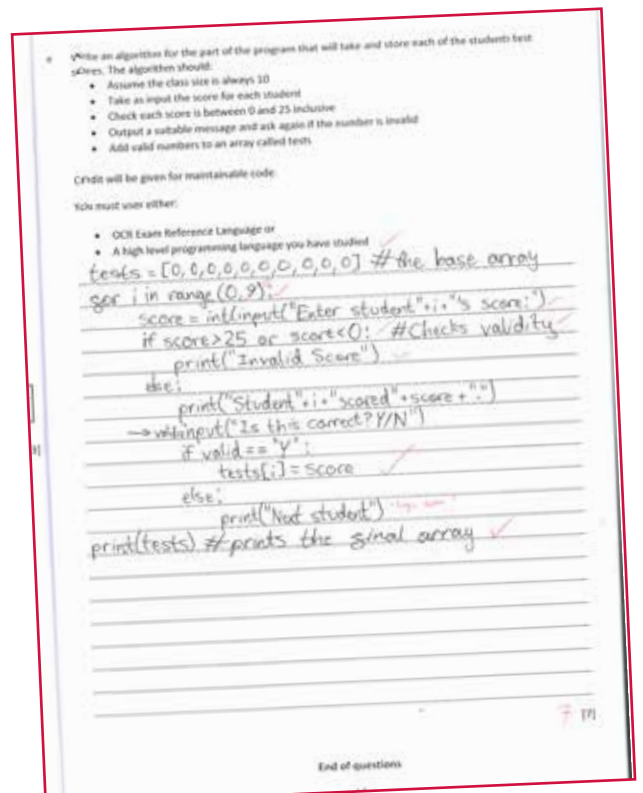 e Write an algorithm for the part of the program that will take and store each of the students test
scores. The algorithm should:
• Assume the class size is always 10
• Take as input the score for each student
• Check each score is between 0 and 25 inclusive
• Output a suitable message and ask again if the number is invalid
• Add valid numbers to an array called tests
Credit will be given for maintainable code
You must user either:
• OCR Exam Reference Language or
• A high level programming language you have studied
tests = [0,0,0,0,0,0,0,0,0,0] # the base array
for i in range (0,9):
score = int(input("Enter student"+i+"'s score:")
if score>25 or score<0: #Checks validity
print("Invalid Score")
else:
print("Student"+i+"scored"+score+".")
input("Is this correct? Y/N")
if valid == "Y":
tests[i] = score
else:
print("Next student")
print(tests) # prints the final array
7 [7]
End of questions